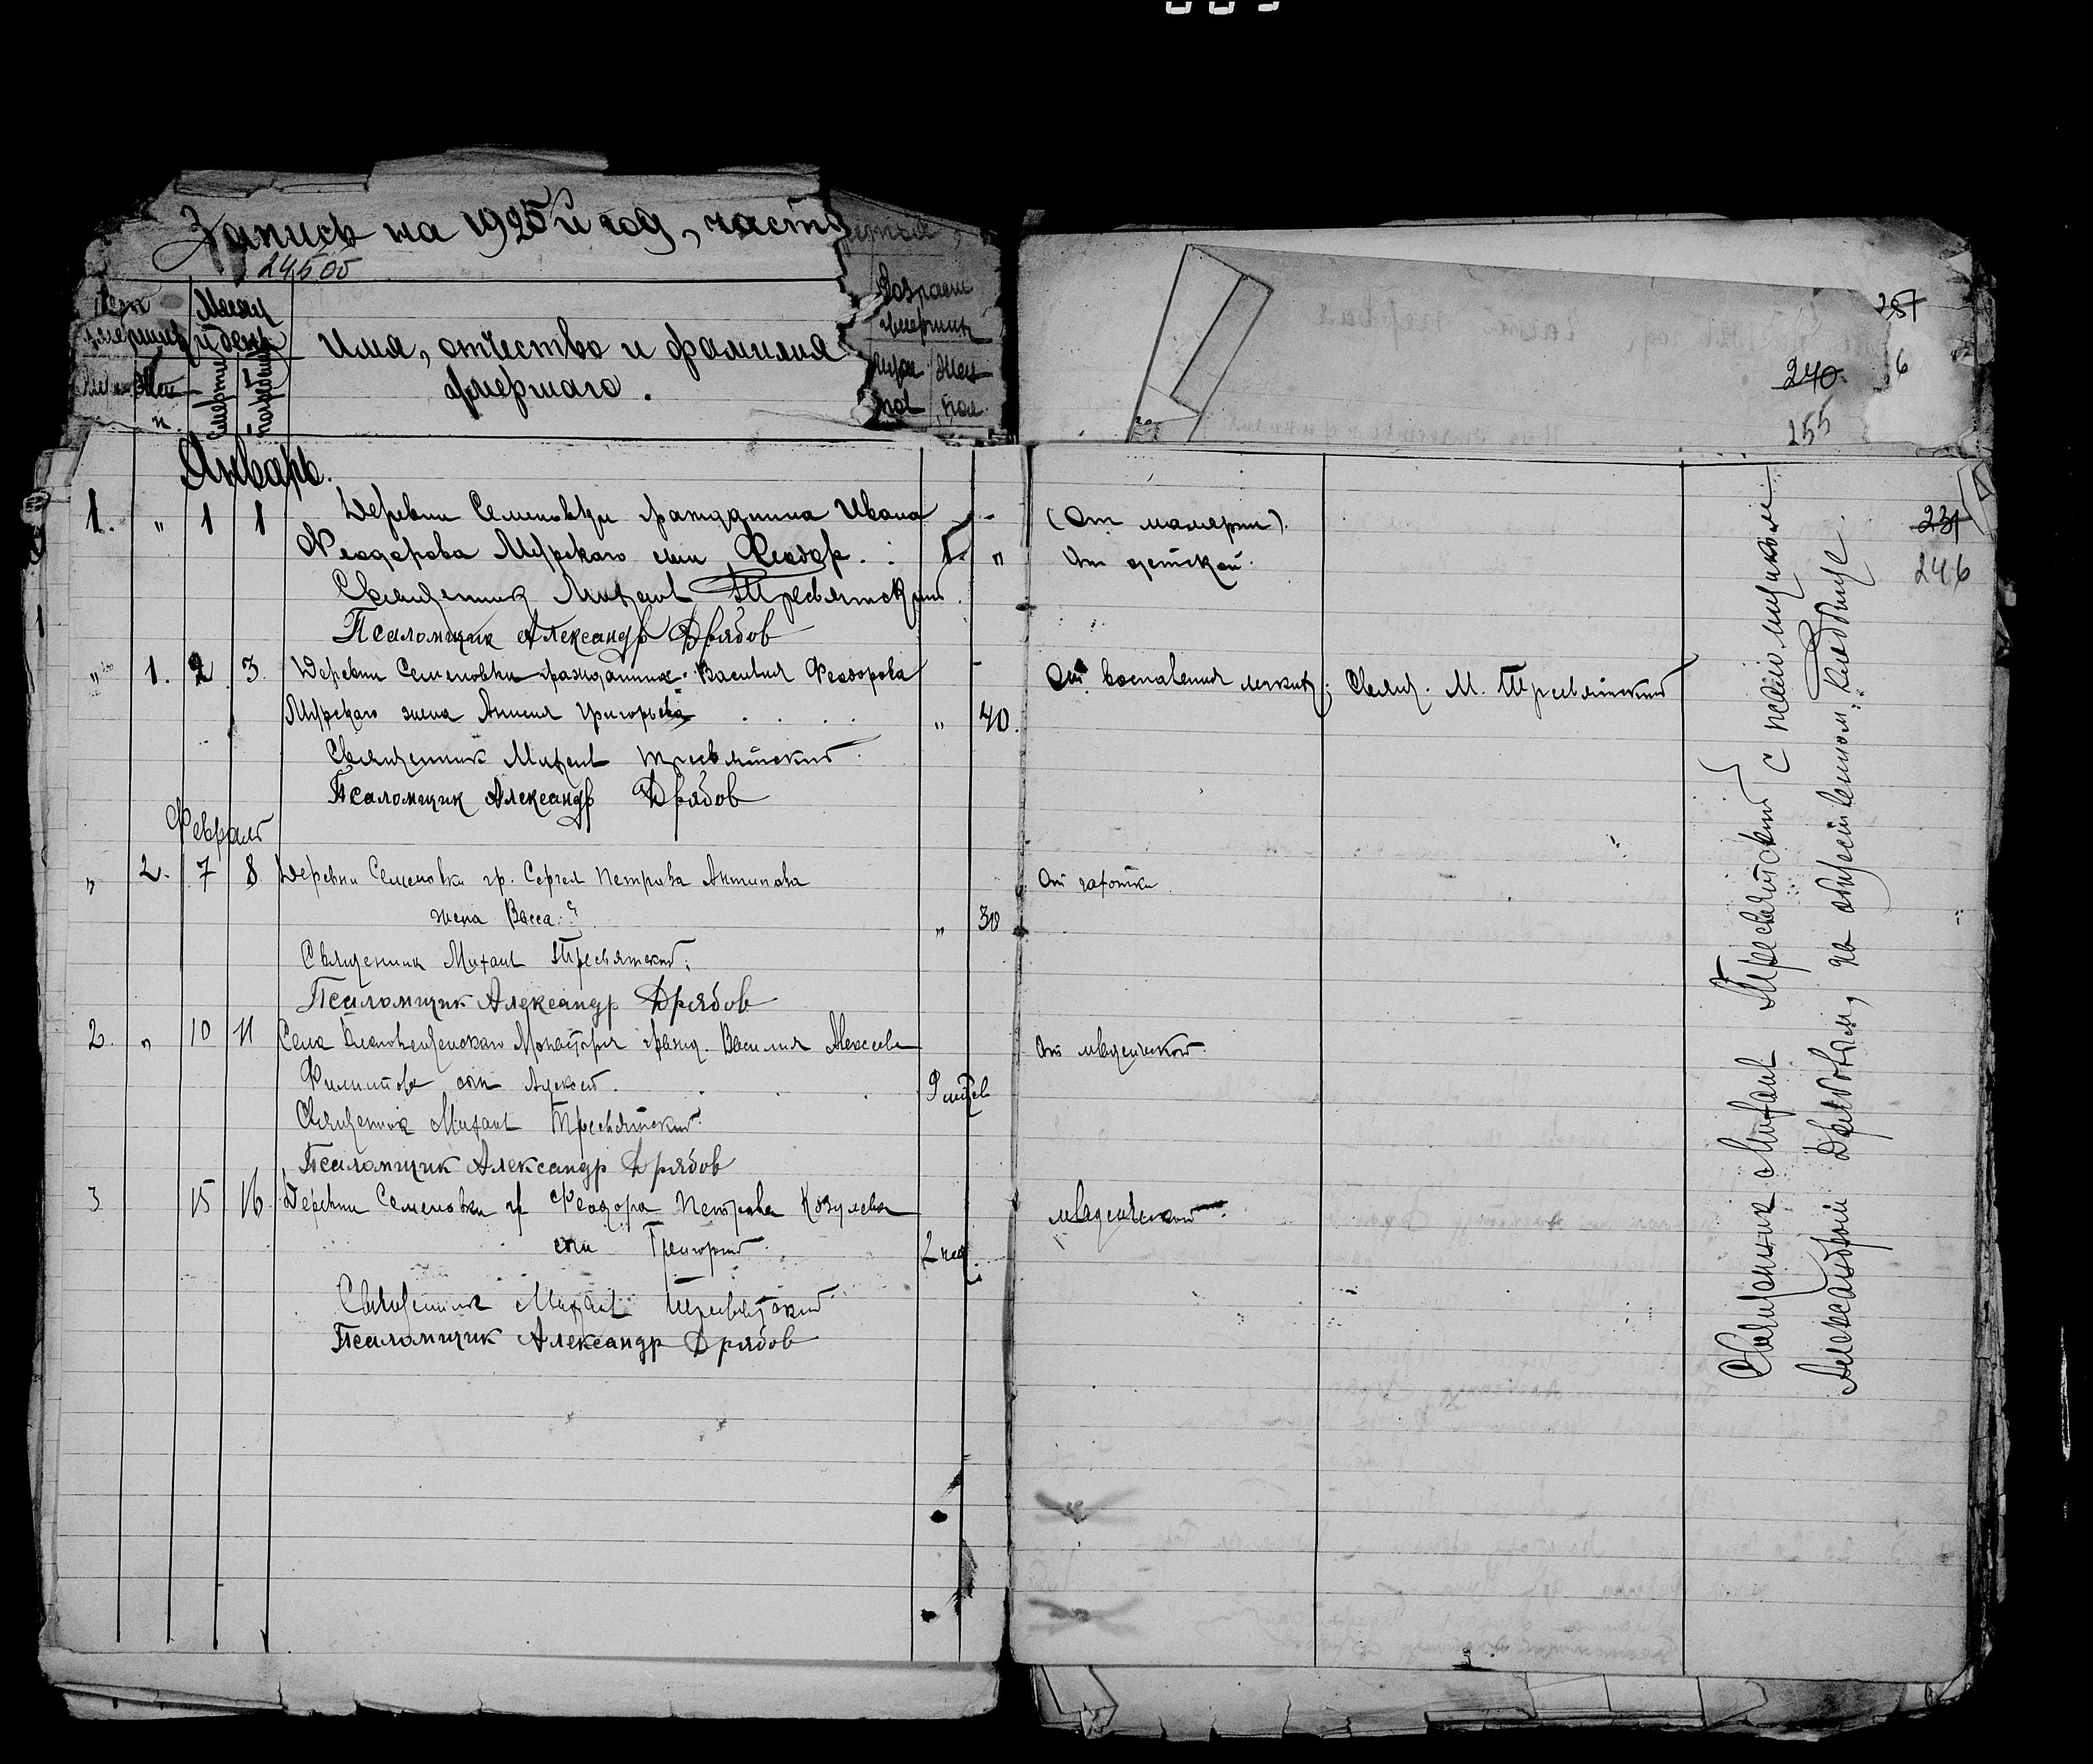 Запись на 1925 й год, часть третья,
24500
Счет умерших
Муж. Жен.
п.
Месяц и день
смерти
погребения
Имя, отчество и фамилия
умершаго.
Возраст
умерших
муж. Жен.
пол пол
257
6
240
255
Январь.
1. " 1 1 Деревни Семеновки гражданина Ивана - (От материи).
Феодорова Мурскаго сын Феодор. . 5. " От детской.
231
246
Священник Михаил Тресвятский.
Псаломщик Александр Дрябов
" 1. 2. 3. Деревни Семеновки гражданина Василия Феодорова - От воспаления легких; Свящ. М. Тресвятский
Мурскаго жена Анисия Григорьева . . . . " 40.
Священник Михаил Тресвятский.
Псаломщик Александр Дрябов
Февраль
" 2. 7 8 Деревни Семеновки гр. Сергея Петрова Антипова От чахотки.
жена Васса. " 30
Священник Михаил Тресвятский.
Псаломщик Александр Дрябов
2. " 10 11 Села Благовещенскаго Монастыря гражд. Василия Алексеева От младенческой.
Филиппова сын Алексей. . . 9 месяцев
Священник Михаил Тресвятский.
Псаломщик Александр Дрябов
3 15 16. Деревни Семеновки гр Феодора Петрова Козулева младенческой.
сын Григорий. 2 нед.
Священник Михаил Тресвятский
Псаломщик Александр Дрябов
Священник Михаил Тресвятский с псаломщиком
Александром Дрябовым, на общественном кладбище.